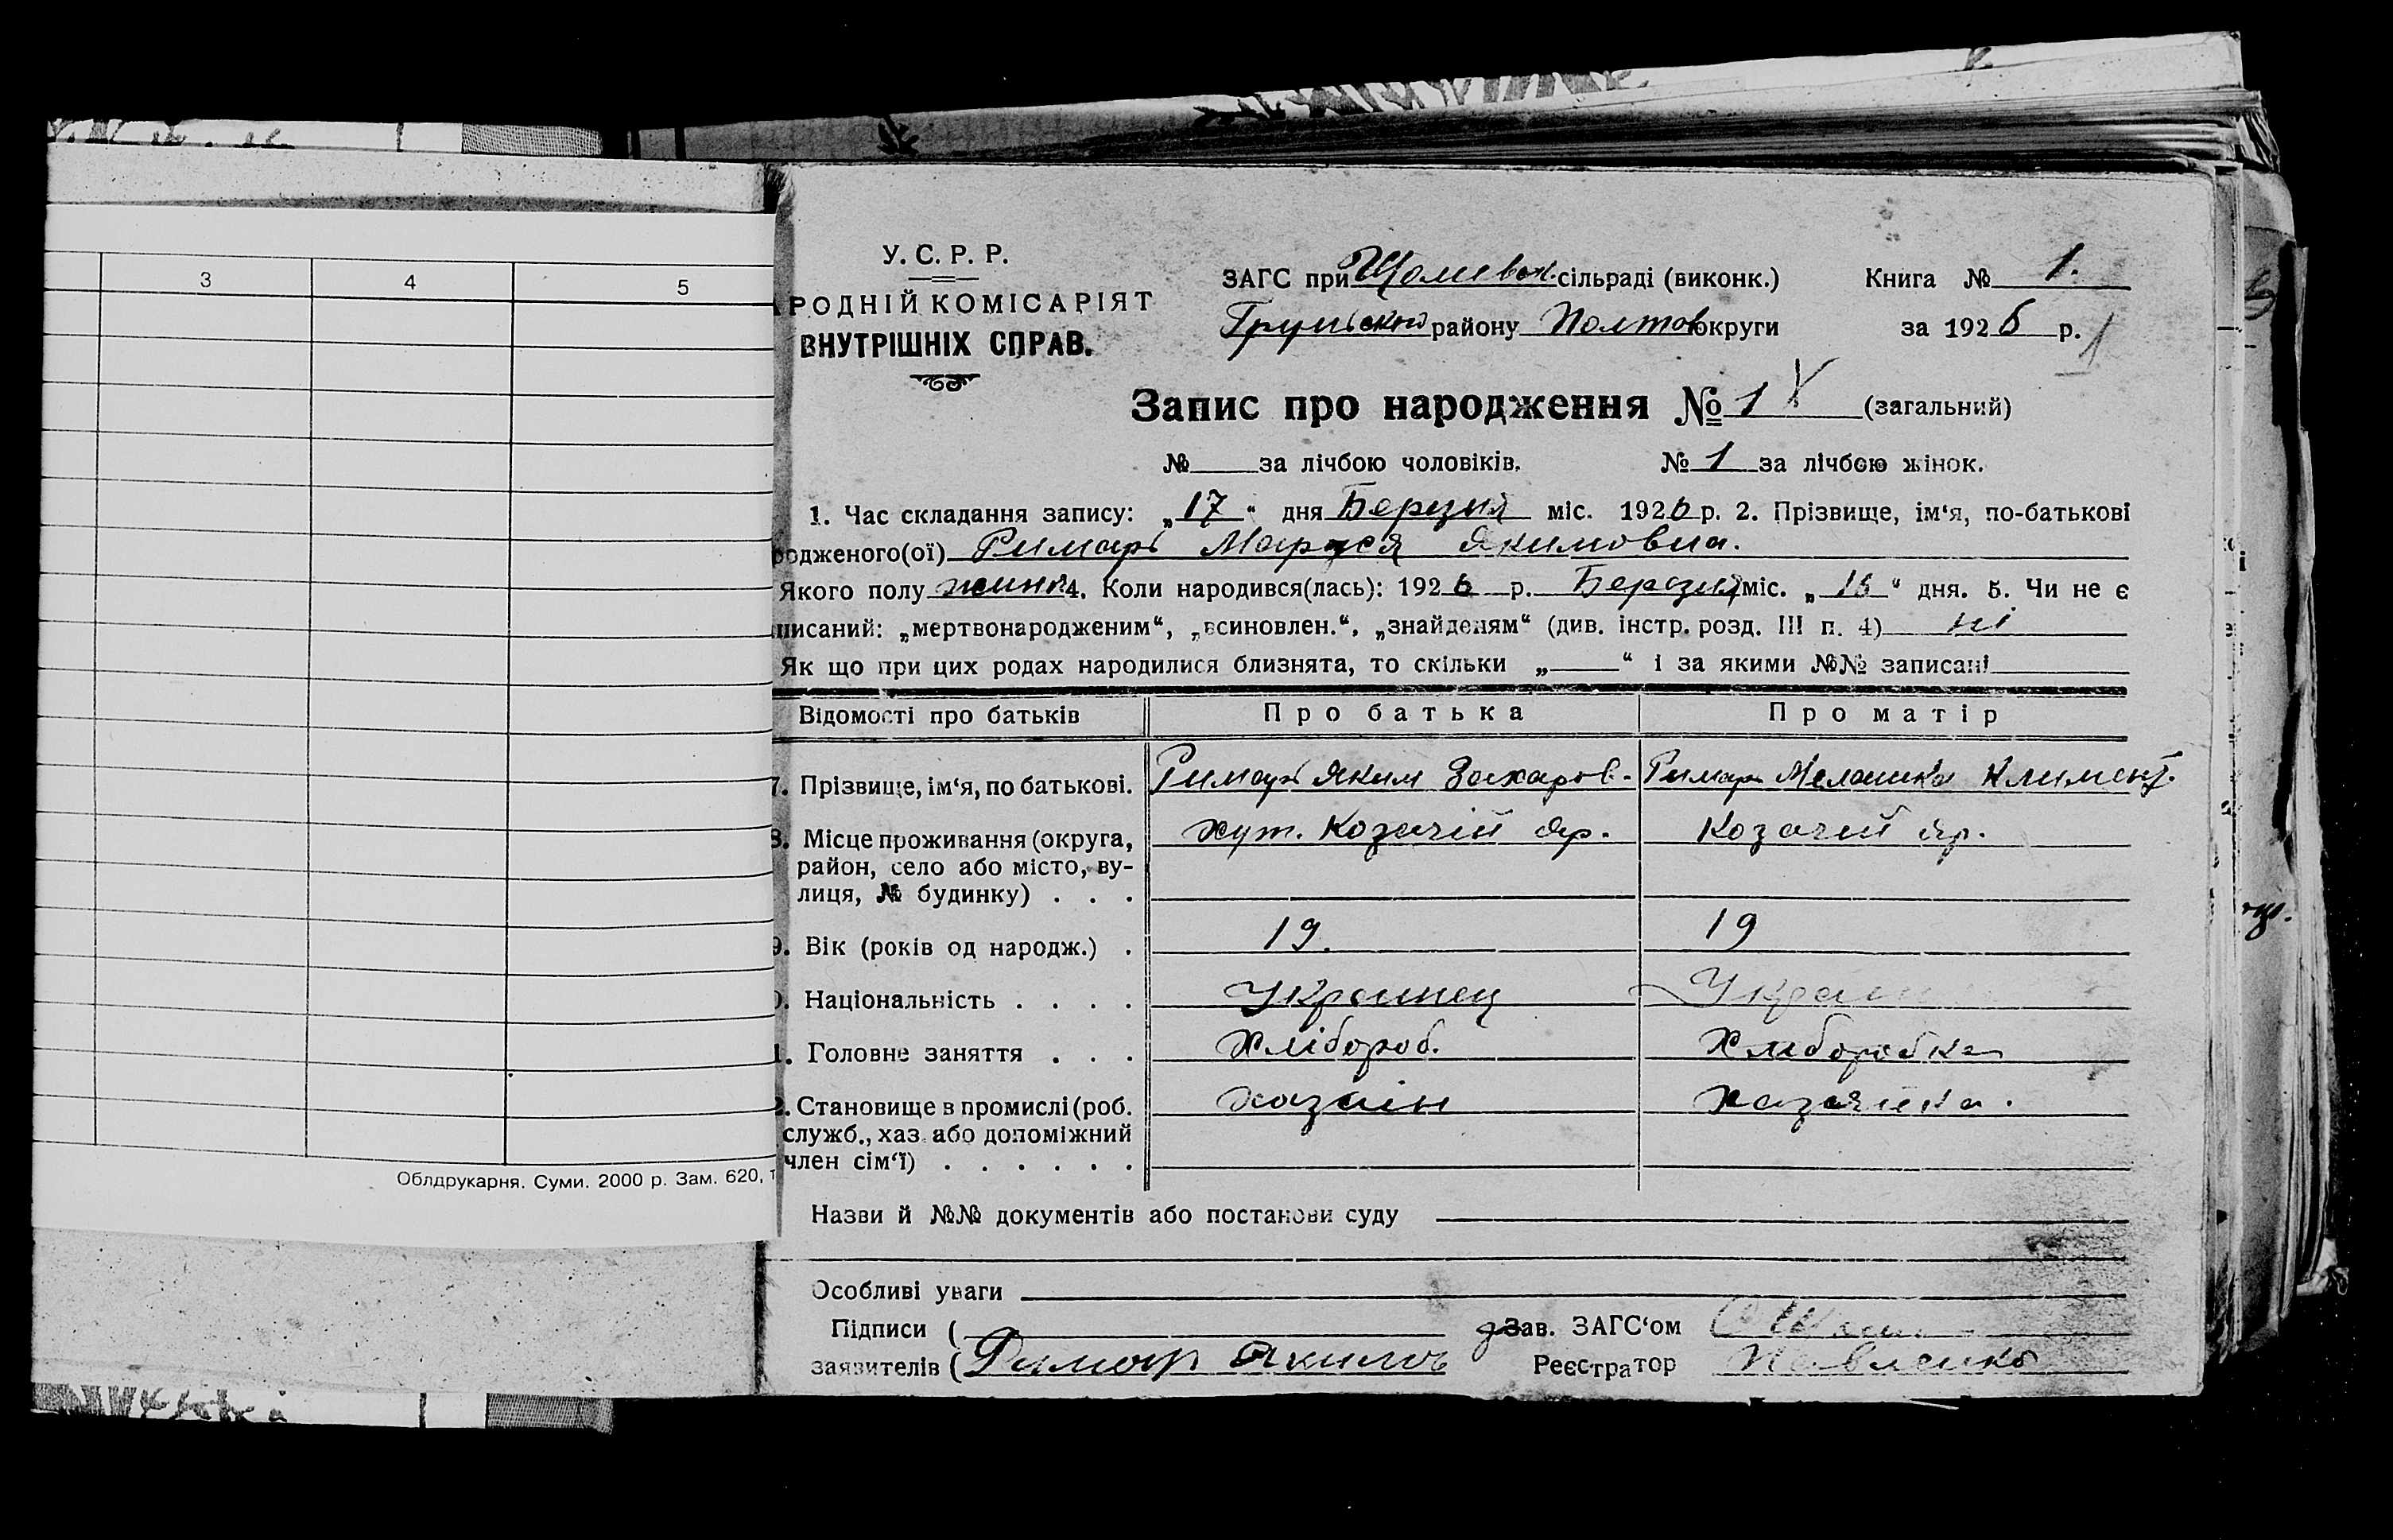 3 4 5
Облдрукарня. Суми. 2000 р. Зам. 620,
У. С. Р. Р.
РОДНІЙ КОМІСАРІЯТ
ВНУТРІШНІХ СПРАВ.
ЗАГС при сільраді (виконк.) Книга № 1.
району Полтов округи за 1926 р. 1
Запис про народження № 1 (загальний)
№ за лічбою чоловіків. № 1 за лічбою жінок.
1. Час складання запису: „17“ дня Березня міс. 1926 р. 2. Прізвище, ім‘я, по-батькові
родженого(ої) Римарь Маруся Якимовна.
Якого полу жиноч 4. Коли народився(лась): 1926 р. Березня міс. „16“ дня. 5. Чи не є
писаний: „мертвонародженим“, „всиновлен.“, „знайденям“ (див. інстр. розд. III п. 4) ні
Як що при цих родах народилися близнята, то скільки „ “ і за якими №№ записані
Відомості про батьків Про батька Про матір
7. Прізвище, ім‘я, по батькові. Римарь Яким Захаров. Римарь Мелашка Климент.
8. Місце проживання (округа, хут. Козачій Яр. Козачий яр.
район, село або місто, ву-
лиця, № будинку) . . .
9. Вік (років од народж.) . 19. 19
Національність . . . . Украинец Украин
Головне заняття . . . Хлібороб. Хліборобка
Становище в промислі (роб. хазяін хазяйка.
служб., хаз. або допоміжний
член сім‘ї) . . . . . .
Назви й №№ документів або постанови суду
Особливі уваги
Підписи ( Зав. ЗАГС‘ом
заявителів ( Римар Яким Реєстратор Павленко